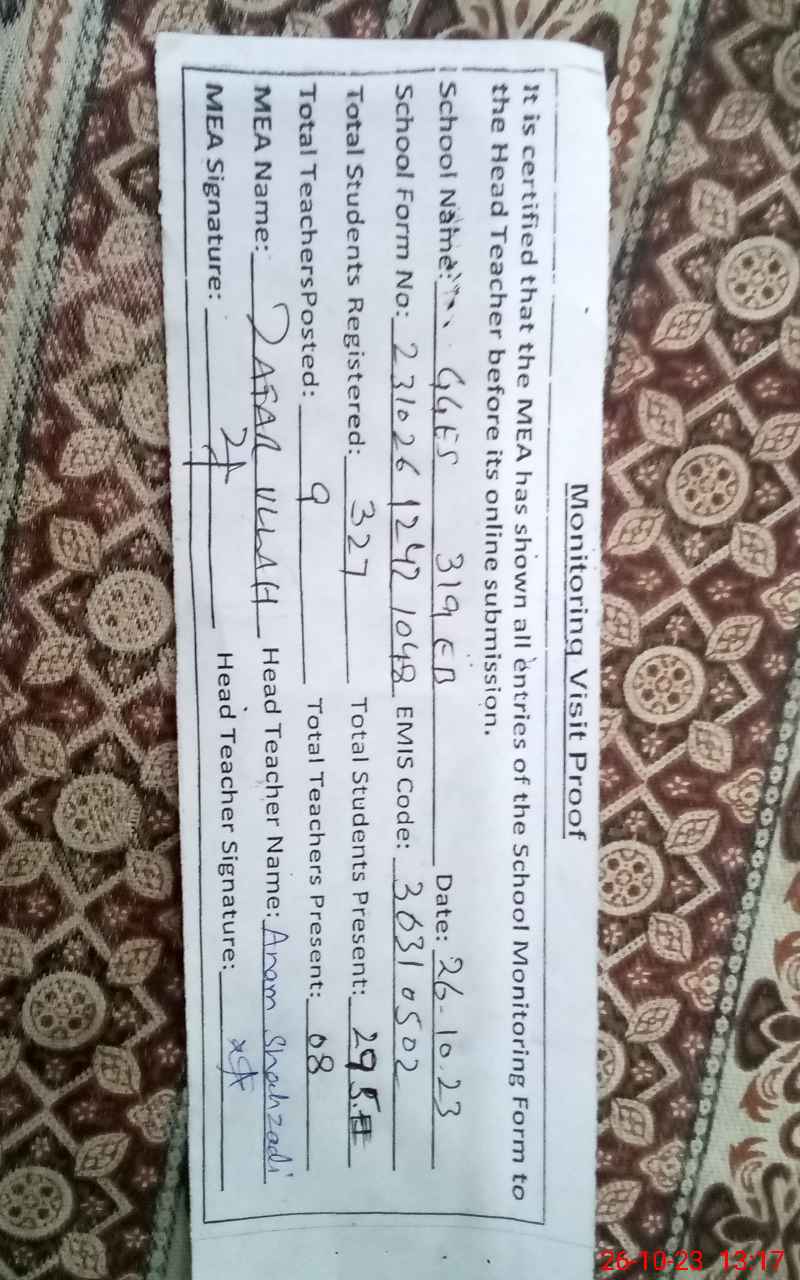 Monitoring Visit Proof
It is certified that the MEA has shown all entries of the School Monitoring Form to
the Head Teacher before its online submission.
School Name: GGES 319 EB Date: 26-10.23
School Form No: 2310261242 1048 EMIS Code: 36310502
Total Students Registered: 327 Total Students Present: 295
Total TeachersPosted: 9 Total Teachers Present: 08
MEA Name: ZAFAR ULLAH Head Teacher Name: Anam Shahzadi
MEA Signature: Head Teacher Signature:
26-10-23 13:17